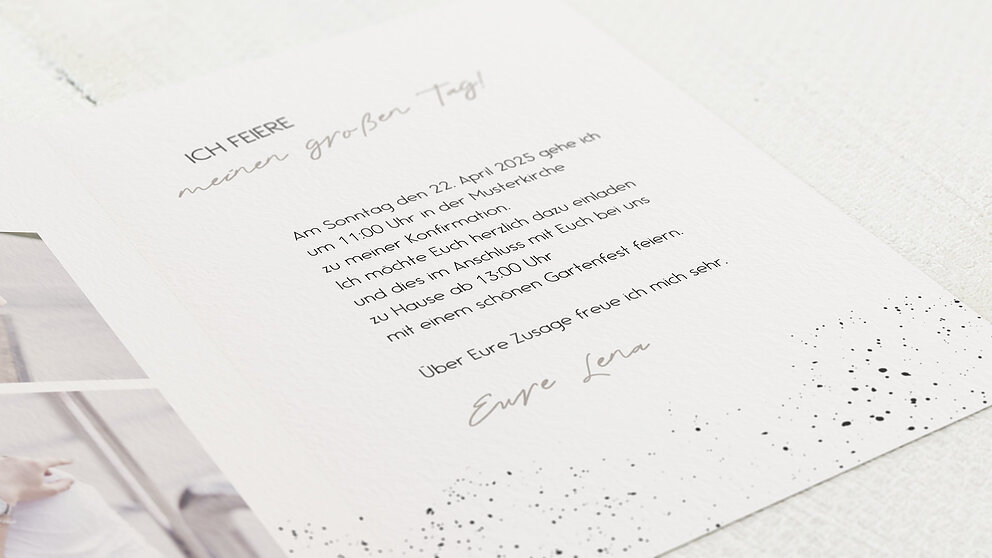 ICH FEIERE
meinen großen Tag!
Am Sonntag den 22. April 2025 gehe ich
um 11:00 Uhr in der Musterkirche
zu meiner Konfirmation.
Ich möchte Euch herzlich dazu einladen
und dies im Anschluss mit Euch bei uns
zu Hause ab 13:00 Uhr
mit einem schönen Gartenfest feiern.
Über Eure Zusage freue ich mich sehr.
Eure Lena